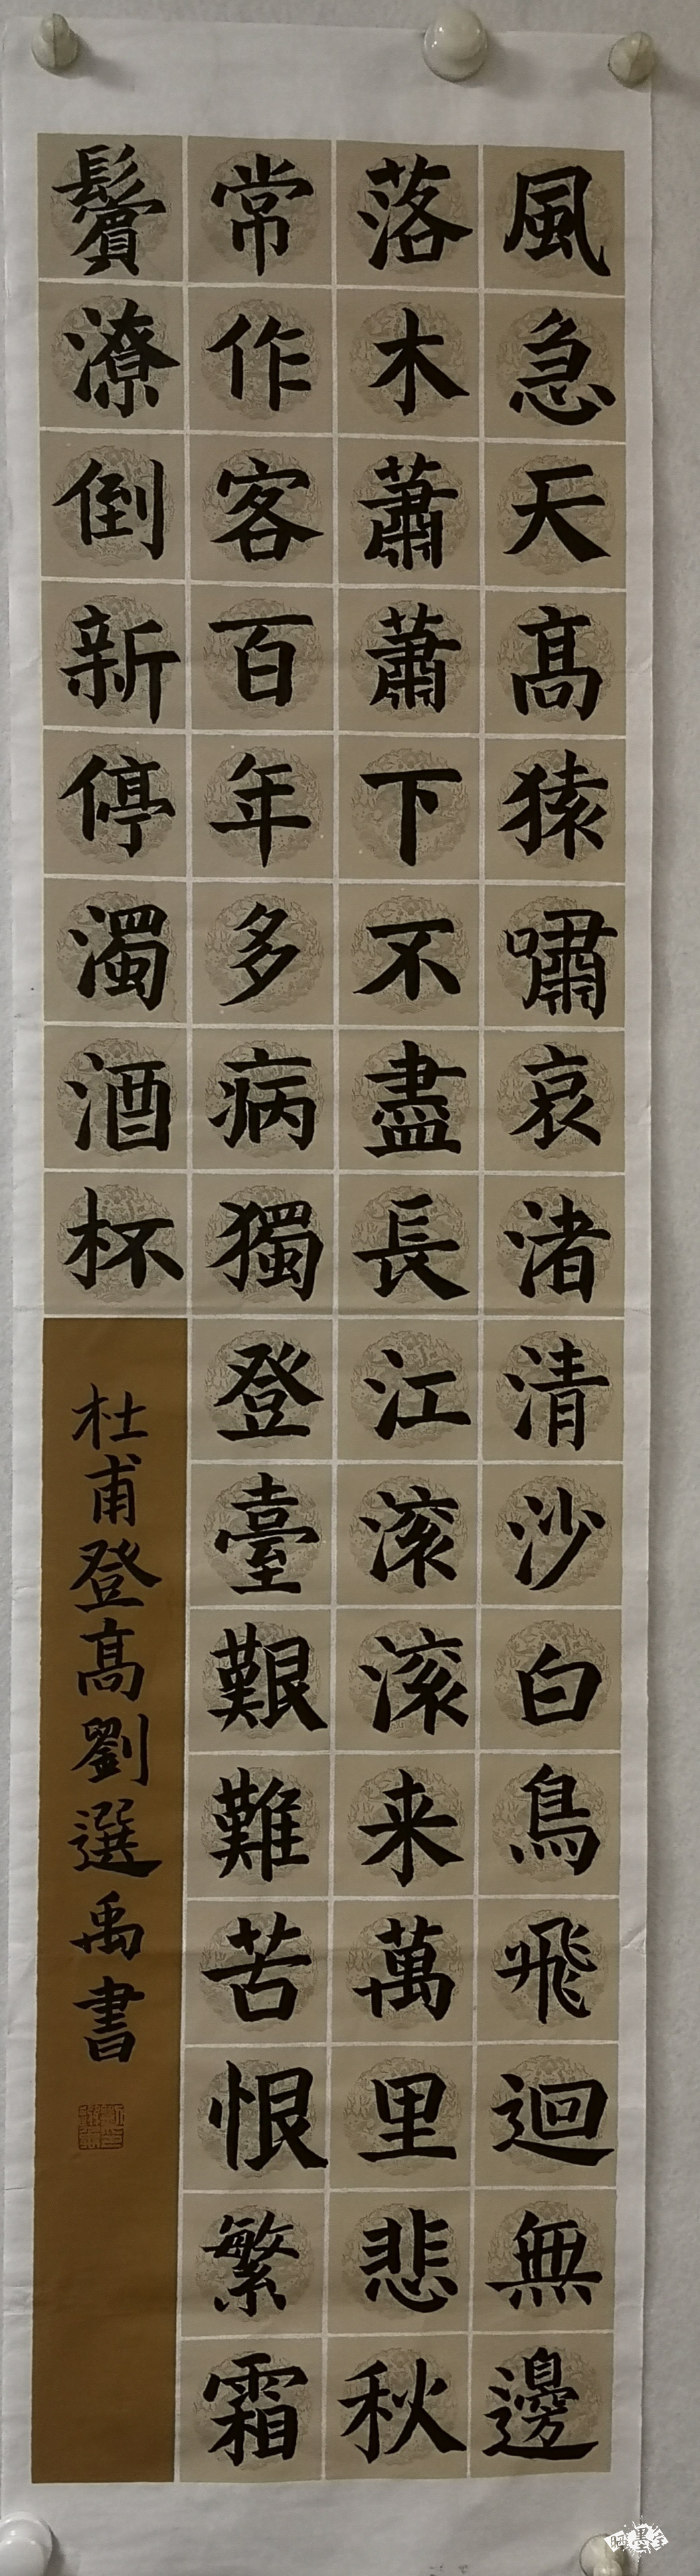 風急天高猿嘯哀渚清沙白鳥飛迴無邊
落木蕭蕭下不盡長江滚滚来萬里悲秋
常作客百年多病獨登臺艱難苦恨繁霜
鬢潦倒新停濁酒杯
杜甫登高劉選禹書